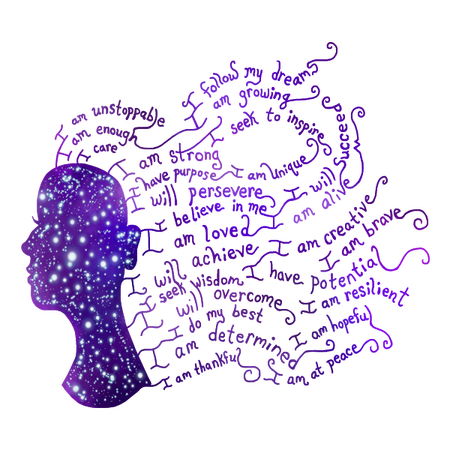 I follow my dreams
I am growing
I am unstoppable
I am enough
I care
I seek to inspire
I will succeed
I am strong
I have purpose
I am unique
I will persevere
I believe in me
I am alive
I am loved
I am creative
I achieve
I am brave
I will
I have potential
I seek wisdom
I will overcome
I am resilient
I do my best
I am hopeful
I am determined
I am at peace
I am thankful